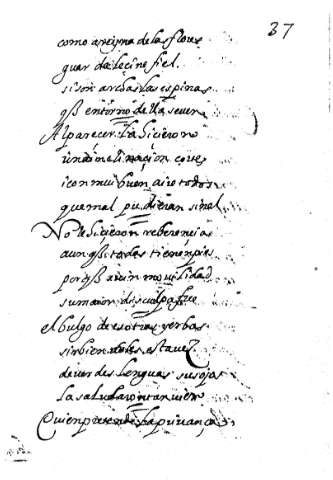 37
como a reyna de las flores
guardale çine fiel
si son archas las espinas
q̃ en torno de lla se ven
Al parecer la hicieron
una inclinaçion cortes
i con mui buen aire todos
que mal pudieran sin el
No le hicieron reberencias
aunq̃ todas tienen pies
porq̃ su inmovilidad
su maior disculpa fue
el bulgo de esotras yerbas
sirbiendoles esta vez
de verdes lenguas sus ojas
la saludaron tambien
Quien pretende la privança